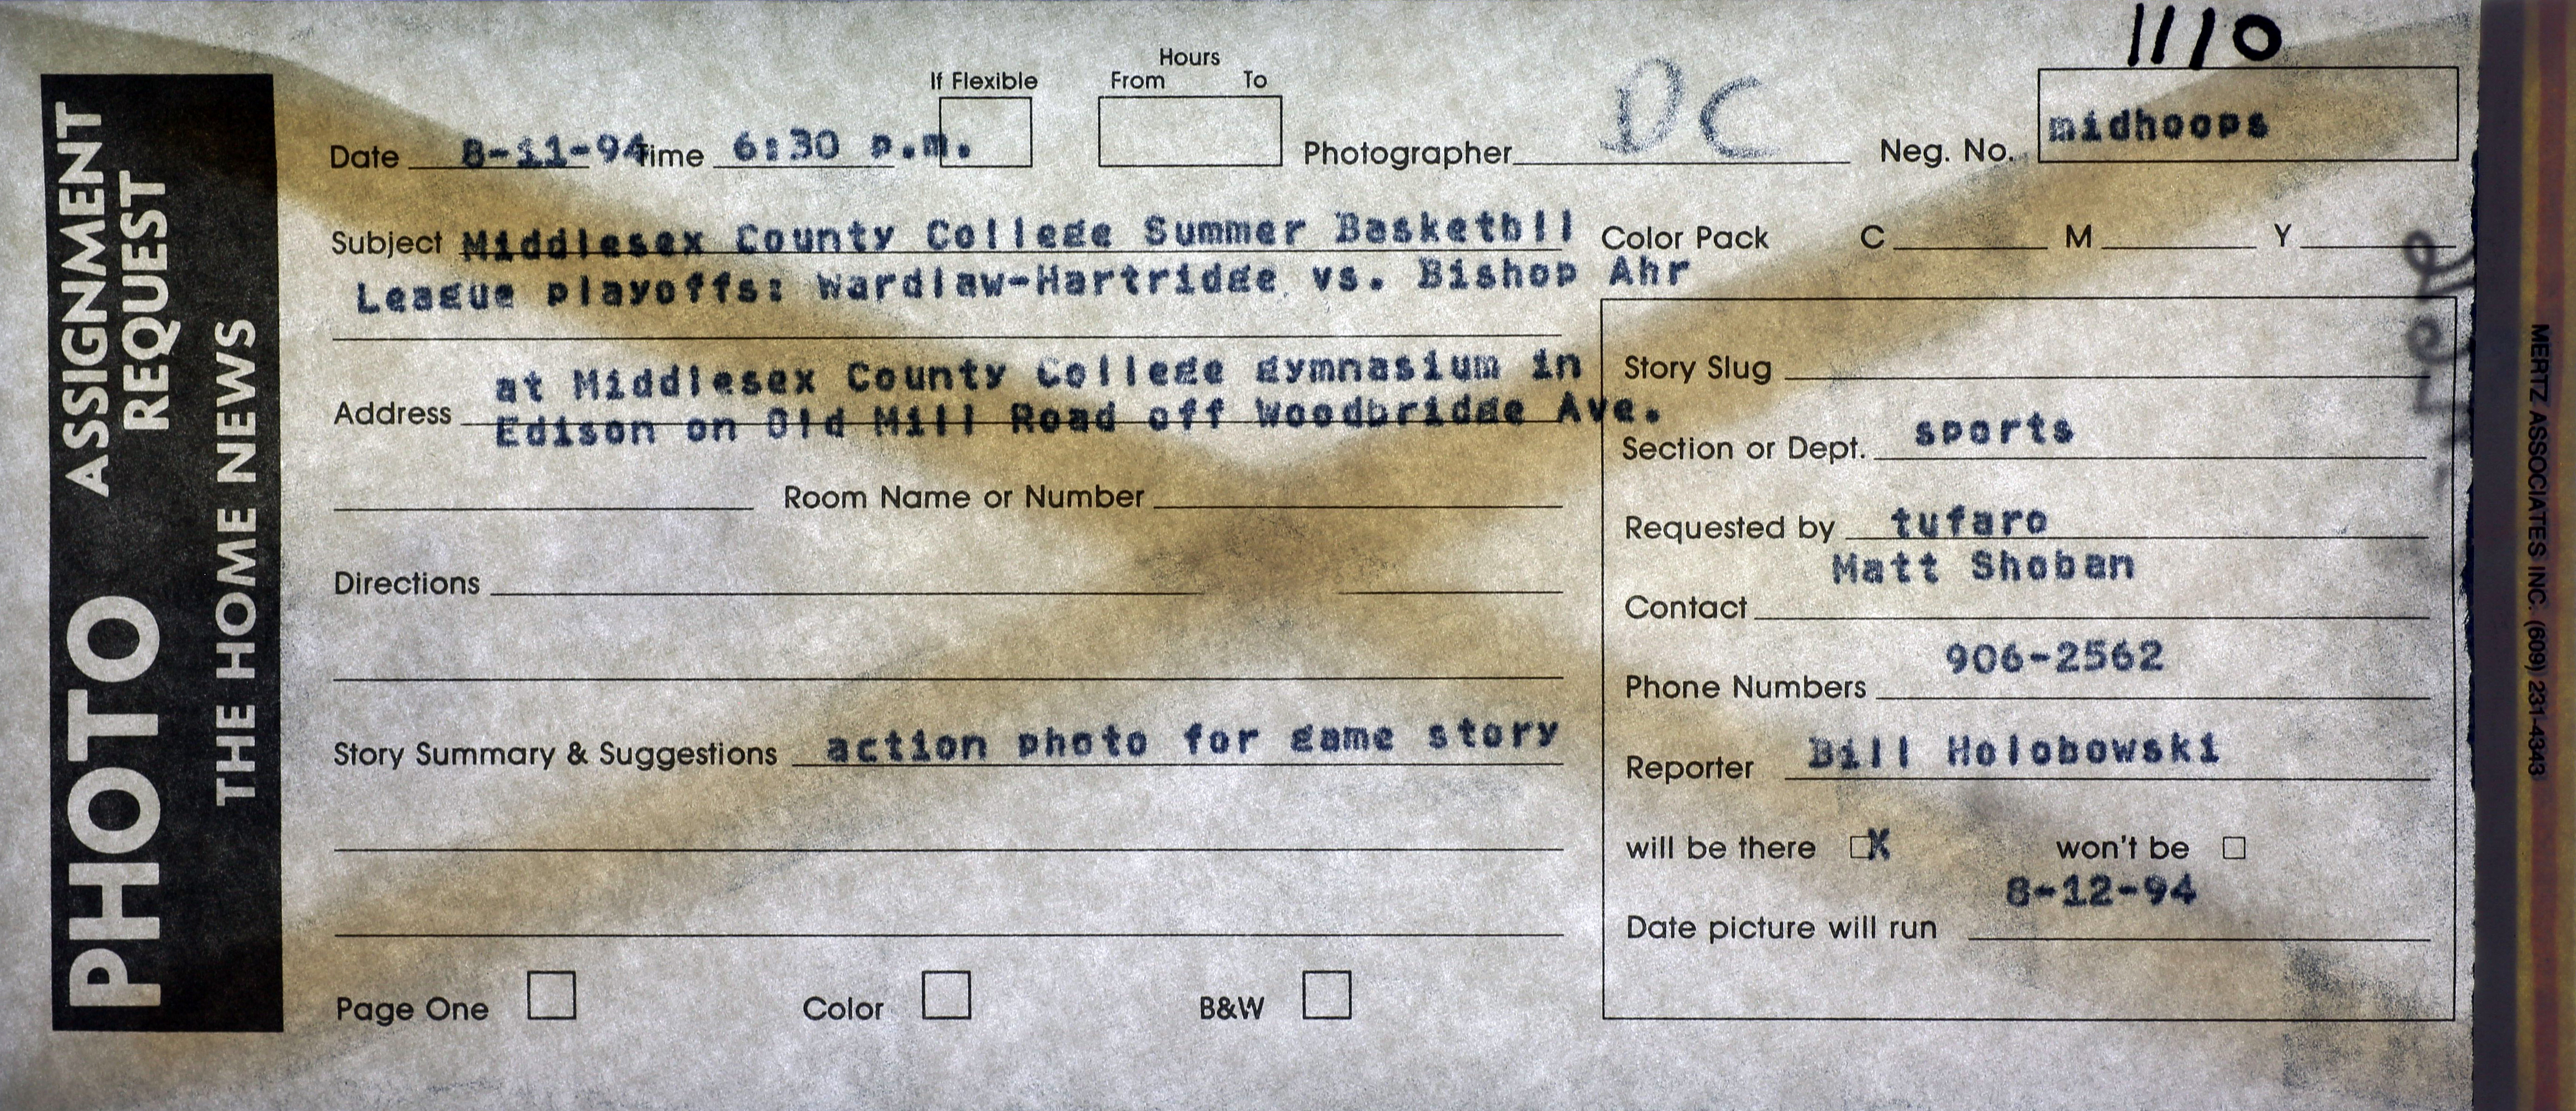 PHOTO ASSIGNMENT REQUEST
THE HOME NEWS
1110
Hours
If Flexible From To
Date 8-11-94 Time 6:30 p.m. Photographer DC Neg. No. midhoops
Subject Middlesex County College Summer Basketbll Color Pack C M Y
League playoffs: Wardlaw-Hartridge vs. Bishop Ahr
at Middlesex County College gymnasium in
Address Edison on Old Mill Road off Woodbridge Ave.
Room Name or Number
Directions
Story Summary & Suggestions action photo for game story
Page One Color B&W
Story Slug
Section or Dept. sports
Requested by tufaro
Matt Shoban
Contact
906-2562
Phone Numbers
Reporter Bill Holobowski
will be there X won't be
8-12-94
Date picture will run
MERTZ ASSOCIATES INC. (609) 231-4343